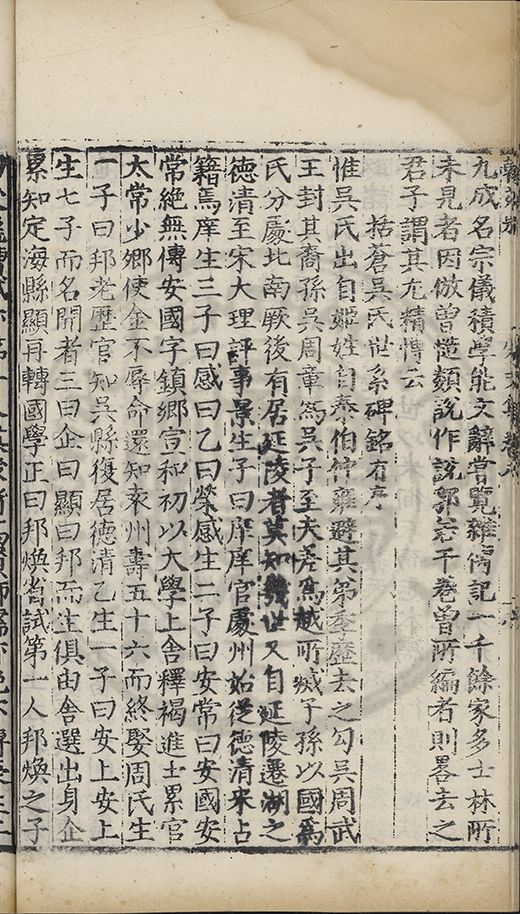 九成名宗儀積學能文辭嘗覽雜傳記一千餘家多士林所
未見者因倣曾慥類說作說郛若干卷曾所編者則畧去之
君子謂其尤精博云
括蒼吳氏世系碑銘有序
惟吳氏出自姬姓自泰伯仲雍避其弟季歷去之勾吳周武
王封其裔孫吳周章爲吳子至夫差爲越所滅子孫以國爲
氏分處北南厥後有居延陵者莫知幾世又自延陵遷湖之
德清至宋大理評事景生子曰庠庠官處州始從德清來占
籍焉庠生三子曰感曰乙曰榮感生二子曰安常曰安國安
常絕無傳安國字鎮鄉宣和初以大學上舍釋褐進士累官
太常少鄉使金不辱命還知袁州壽五十六而終娶周氏生
一子曰邦老歷官知吳縣復居德清乙生一子曰安上安上
生七子而名聞者三曰企曰顯曰邦而生俱由舍選出身企
累知定海縣顯再轉國學正曰邦煥省試第一人邦煥之子